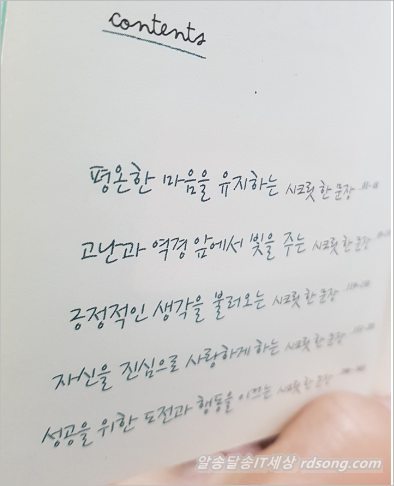 contents
평온한 마음을 유지하는 시크릿 한 문장
고난과 역경 앞에서 빛을 주는 시크릿 한 문장
긍정적인 생각을 불러오는 시크릿 한 문장
자신을 진심으로 사랑하게 하는 시크릿 한 문장
성공을 위한 도전과 행동을 이끄는 시크릿 한 문장
알쏭달쏭IT세상 rdsong.com